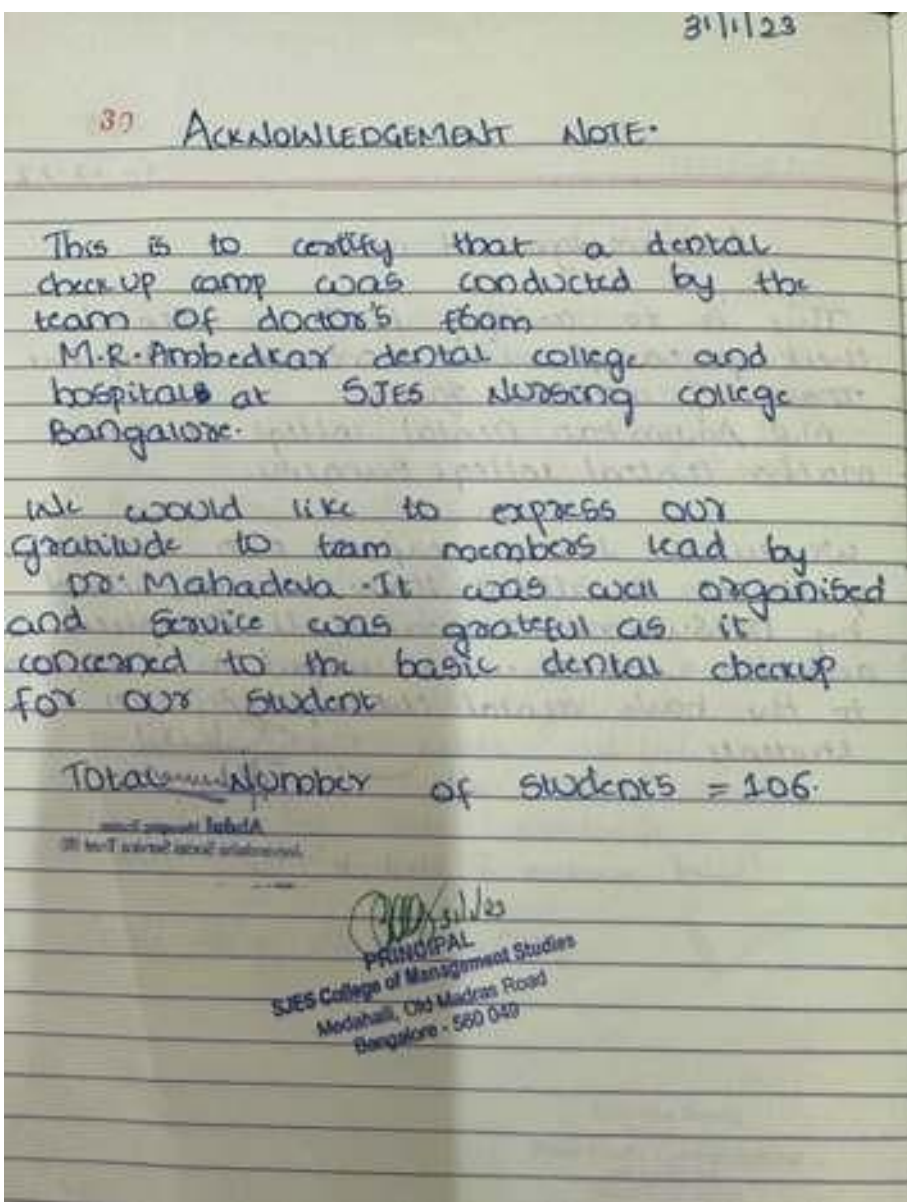 31/1/23
30 ACKNOWLEDGEMENT NOTE.
This is to certify that a dental
check up camp was conducted by the
team of doctor's from
M.R. Ambedkar dental college and
hospitals at SJES Nursing college
Bangalore.
We would like to express our
gratitude to team members lead by
Dr. Mahadeva. It was well organised
and service was grateful as it
concerned to the basic dental checkup
for our student
Total Number of students = 106.
31/1/23
PRINCIPAL
SJES College of Management Studies
Medahalli, Old Madras Road
Bangalore - 560 049